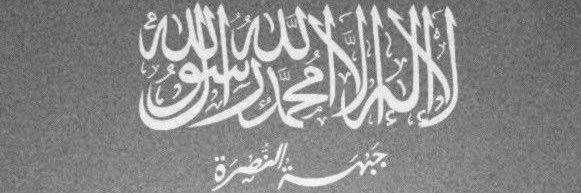 لا إله إلا الله محمد رسول الله
جبهة النصرة